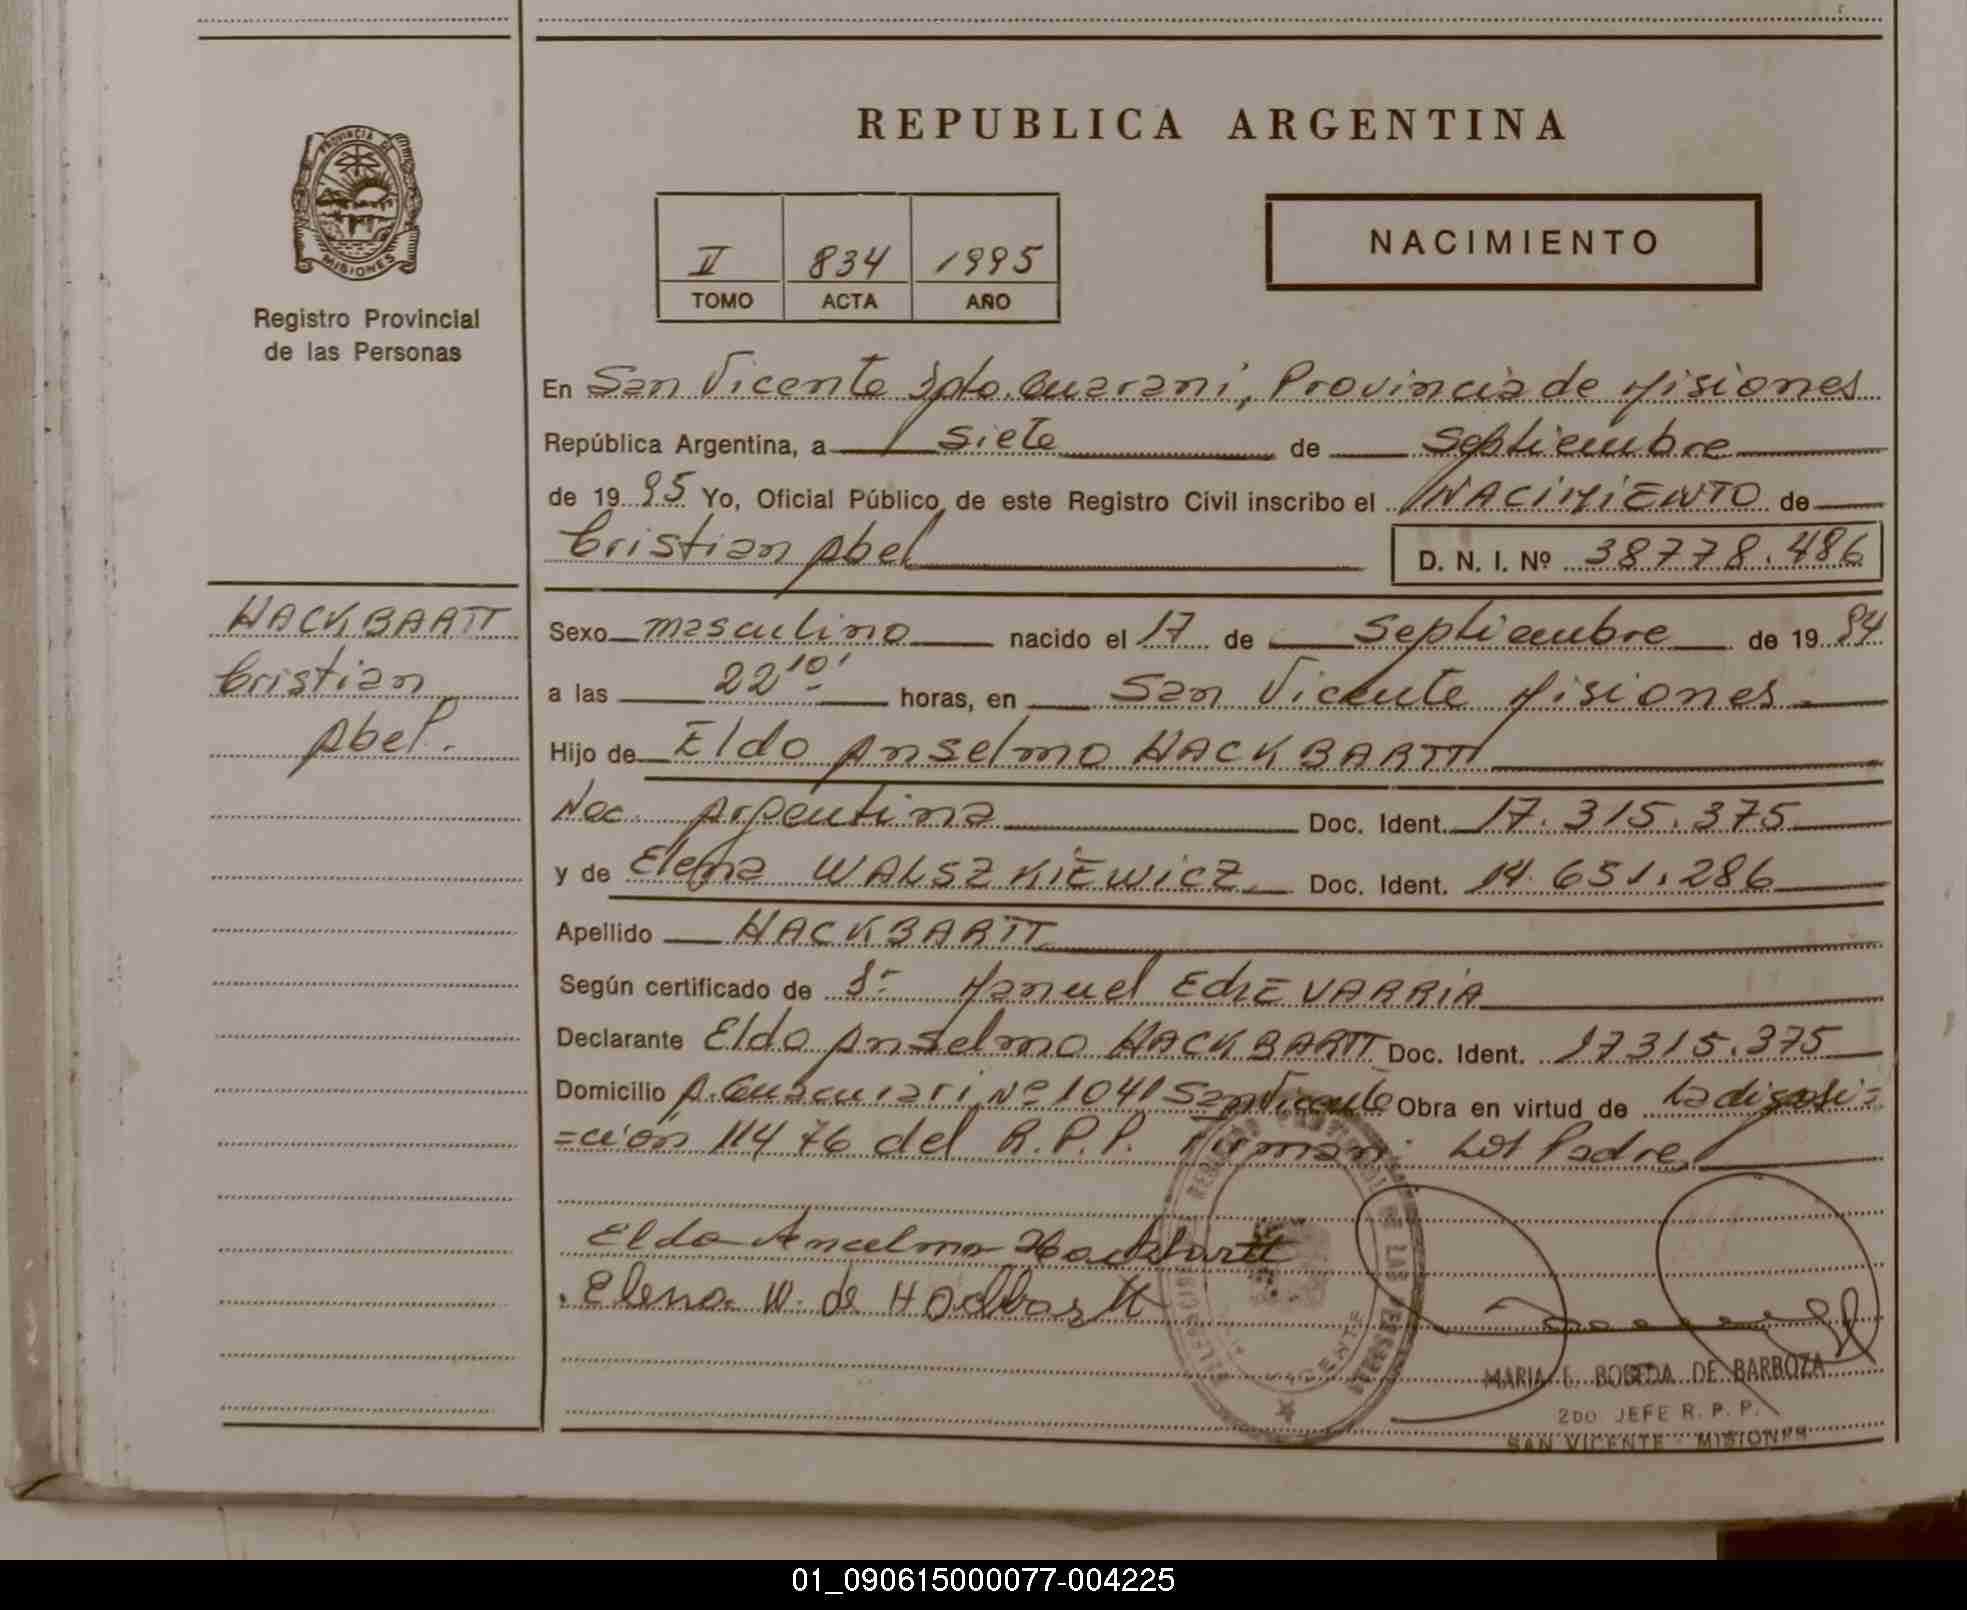 PROVINCIA DE
MISIONES
Registro Provincial
de las Personas
REPUBLICA ARGENTINA
II 834 1995
TOMO ACTA AÑO
NACIMIENTO
En San Vicente Dpto. Guarani, Provincia de Misiones
República Argentina, a siete de Septiembre
de 19 95 Yo, Oficial Público de este Registro Civil inscribo el NACIMIENTO de
Cristian Abel D. N. I. Nº 38778.486
HACKBARTT
Cristian
Abel.
Sexo masculino nacido el 17 de Septiembre de 19 94
a las 22 10' horas, en San Vicente Misiones
Hijo de Eldo Anselmo HACKBARTT
Nac. Argentina Doc. Ident. 17.315.375
y de Elena WALSZKIEWICZ Doc. Ident. 14.651.286
Apellido HACKBARTT
Según certificado de Manuel EchEVARRIA
Declarante Eldo Anselmo HACKBARTT Doc. Ident. 17315.375
Domicilio A. Guacurari Nº 1041 San Vicente Obra en virtud de La disposi=
=ción 11476 del R.P.P. Firman: Los Padres
Eldo Ancelmo Hackbartt
Elena W. de Hackbartt
MARIA E. BOBEDA DE BARBOZA
2DO JEFE R. P. P.
SAN VICENTE - MISIONES
01_090615000077-004225